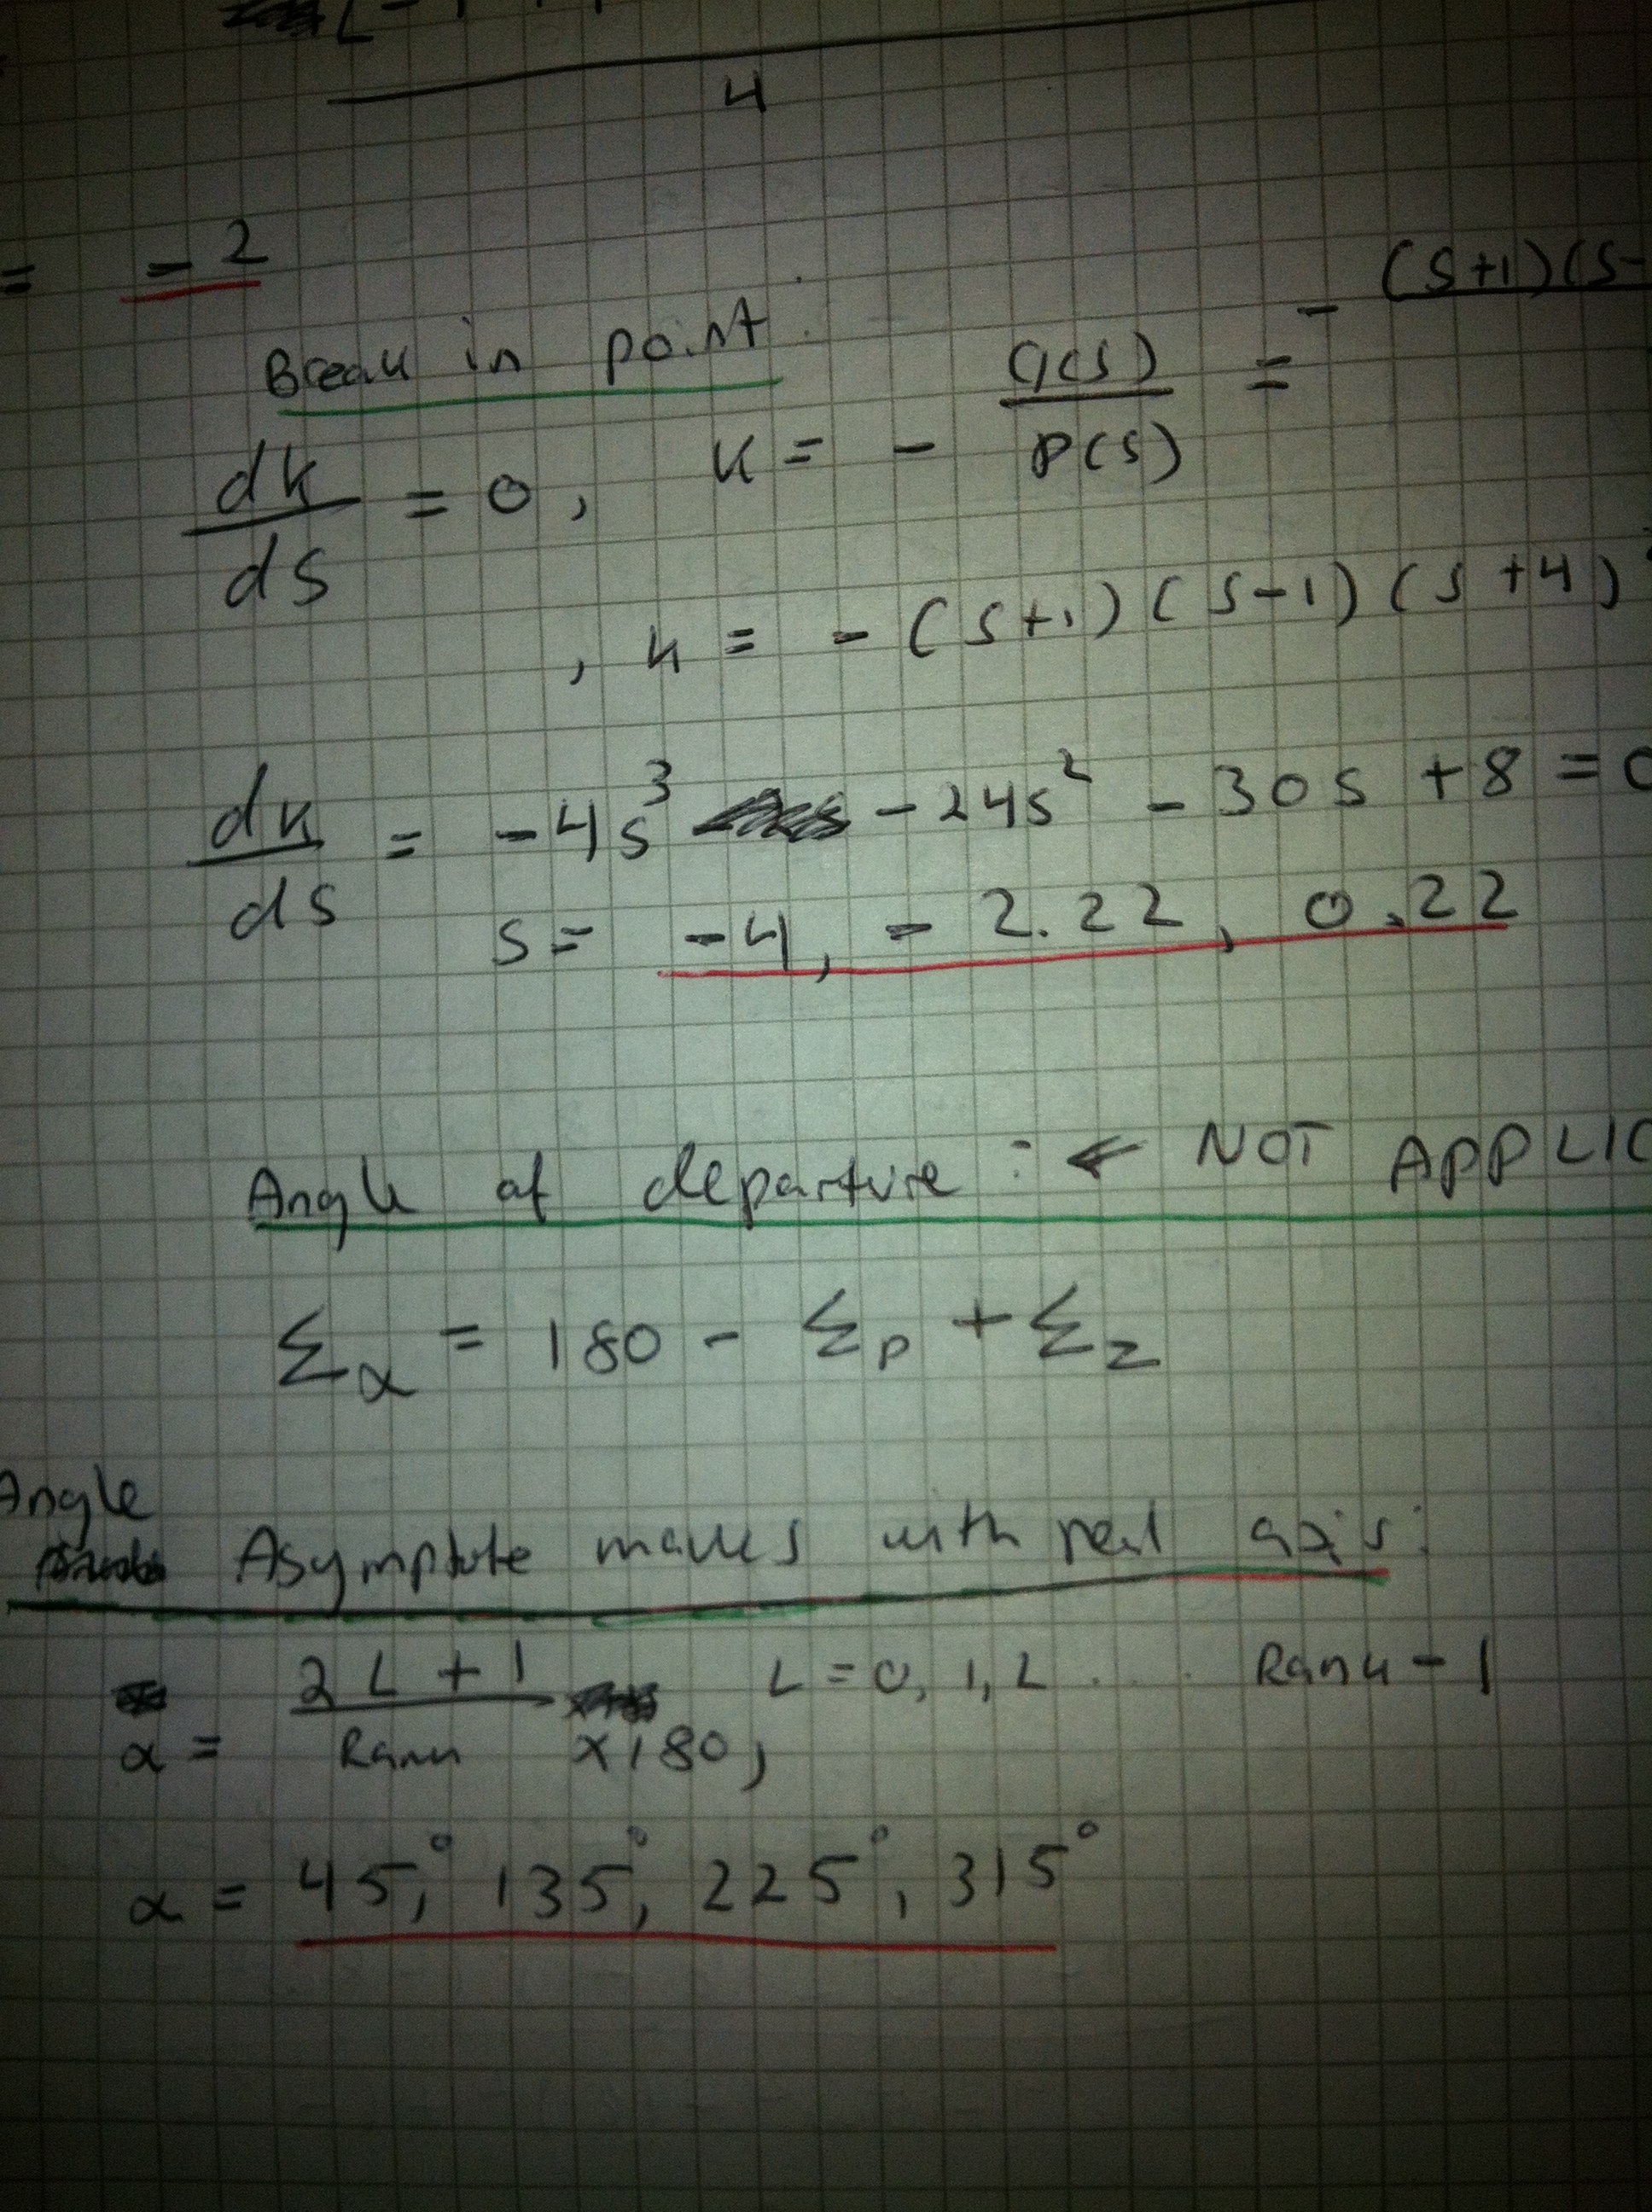 4
= -2
Break in point :
dk/ds = 0, K = - G(s)/P(s) = - (s+1)(s-
, K = -(s+1)(s-1)(s+4)²
dk/ds = -4s³ -24s² - 30s + 8 = 0
s = -4, -2.22, 0.22
Angle of departure : ← NOT APPLIC
Σα = 180 - Σp + Σz
Angle
Asymptote makes with real axis:
α = 2L+1/Rank ×180, L = 0, 1, 2 . . . Rank-1
α = 45°, 135°, 225°, 315°